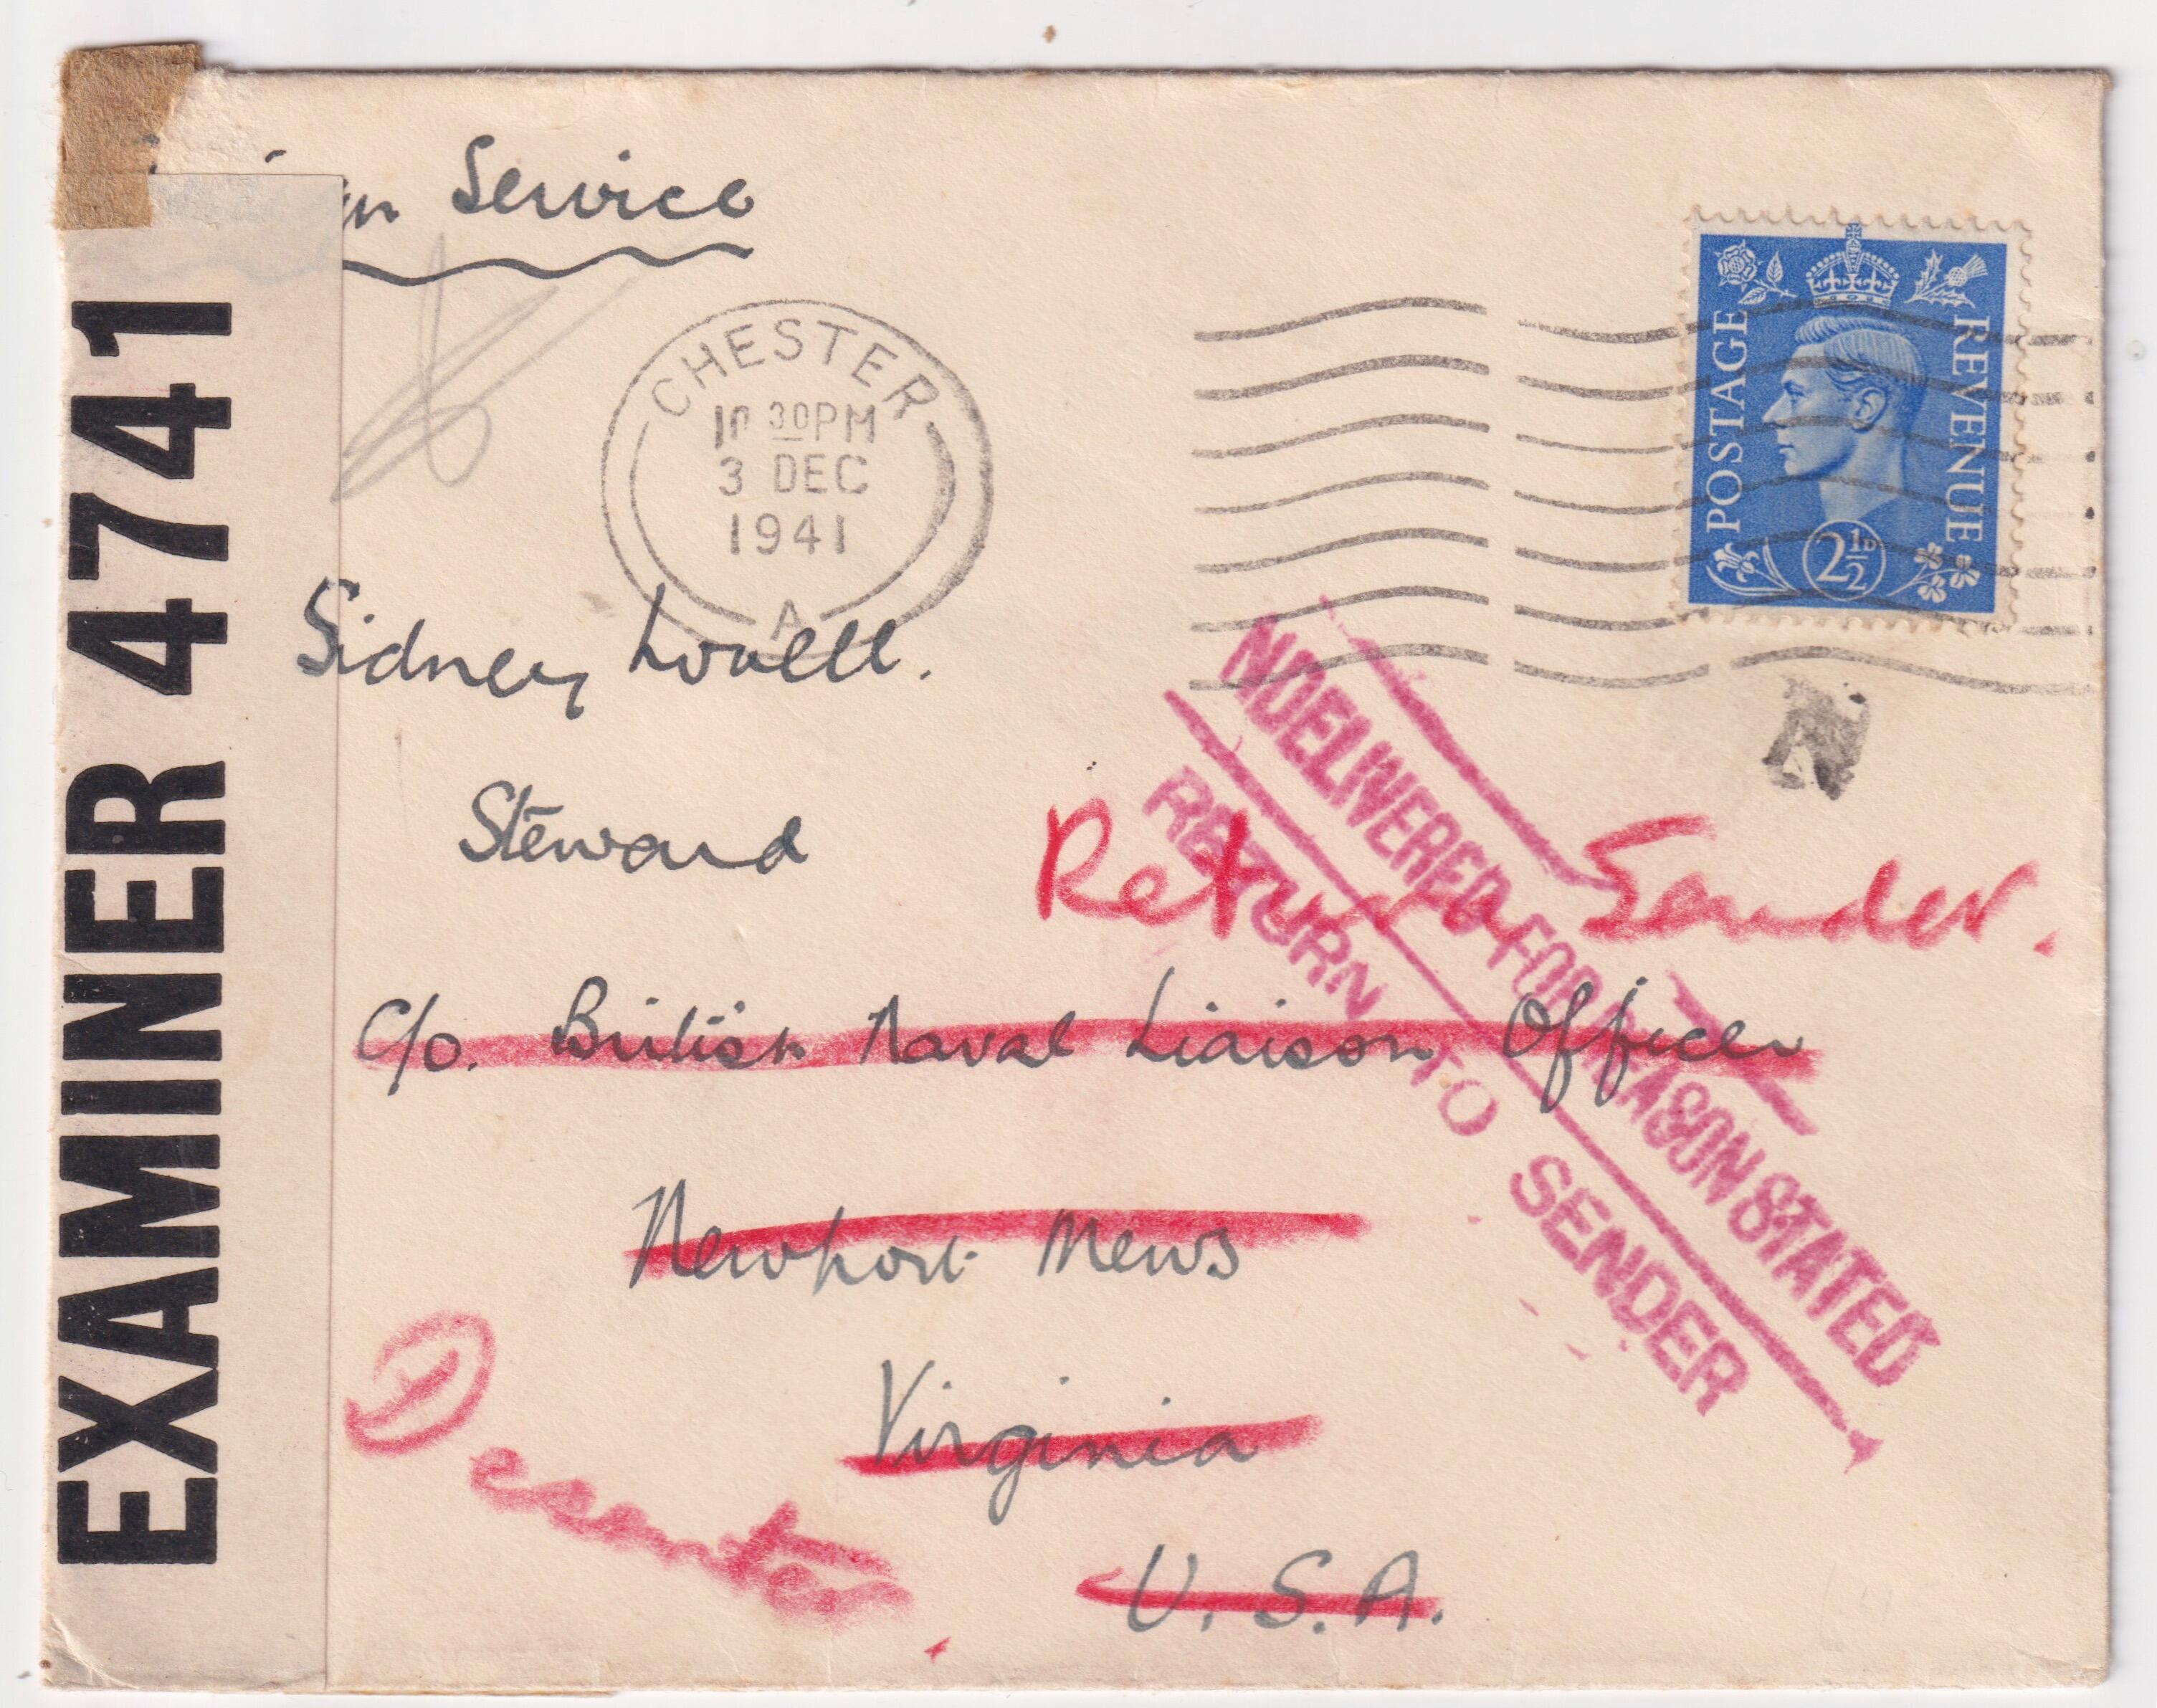 Service
EXAMINER 4741
CHESTER
10 30PM
3 DEC
1941
A
POSTAGE
REVENUE
2½D
Sidney Lovell.
Steward
Return Sender.
C/o. British Naval Liaison Officer
Newport News
Virginia
U.S.A.
NDELIVERED FOR REASON STATED
RETURN TO SENDER
Deserter